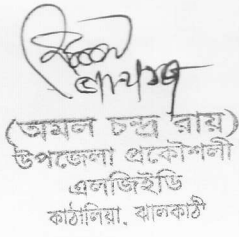 (অমল চন্দ্র রায়)
উপজেলা প্রকৌশলী
এলজিইডি
কাঠালিয়া, ঝালকাঠী